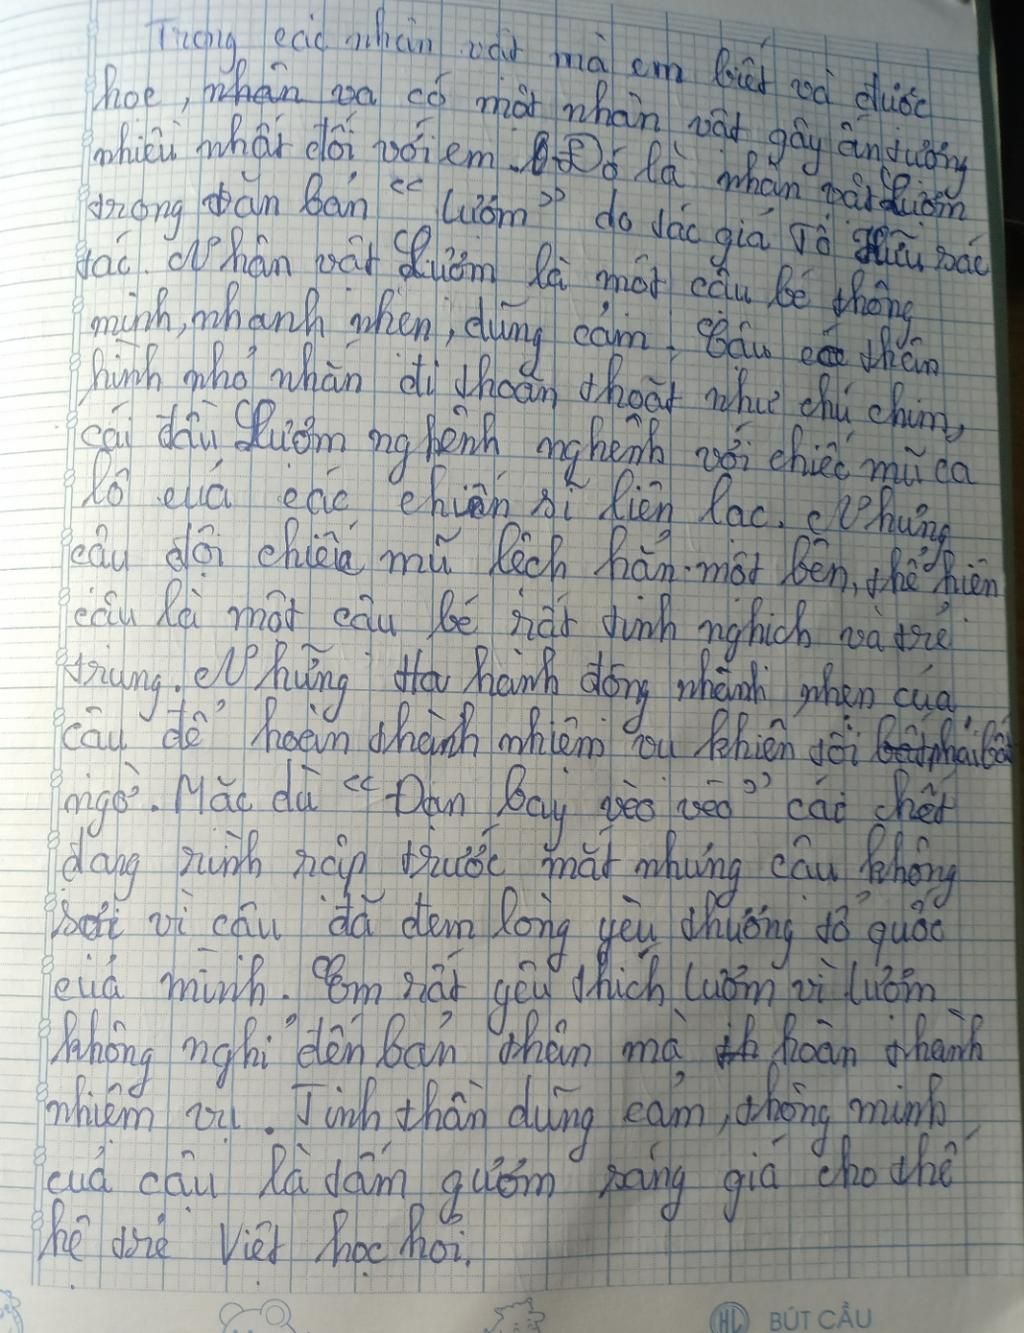 Trong các nhân vật mà em biết và được
học, nhân va có một nhân vật gây ấn tượng
nhiều nhất đối với em. Đó là nhân vật Lượm
trong văn bản "Lượm" do tác giả Tố Hữu sác
tác. Nhân vật Lượm là một cậu bé thông
minh, nhanh nhẹn, dũng cảm. Cậu có thân
hình nhỏ nhắn đi thoăn thoắt như chú chim,
cái đầu Lượm nghênh nghênh với chiếc mũ ca
lô của các chiến sĩ liên lạc. Nhưng
cậu đội chiếc mũ lệch hẳn một bên, thể hiện
cậu là một cậu bé rất tinh nghịch và trẻ
trung. Những hành động nhanh nhẹn của
cậu để hoàn thành nhiệm vụ khiến tôi phải bất
ngờ. Mặc dù "Đạn bay vèo vèo" cái chết
đang rình rập trước mắt nhưng cậu không
sợ vì cậu đã đem lòng yêu thương tổ quốc
của mình. Em rất yêu thích Lượm vì Lượm
không nghĩ đến bản thân mà hoàn thành
nhiệm vụ. Tinh thần dũng cảm, thông minh
của cậu là tấm gương sáng giá cho thế
hệ trẻ Việt học hỏi.
HL BÚT CẦU